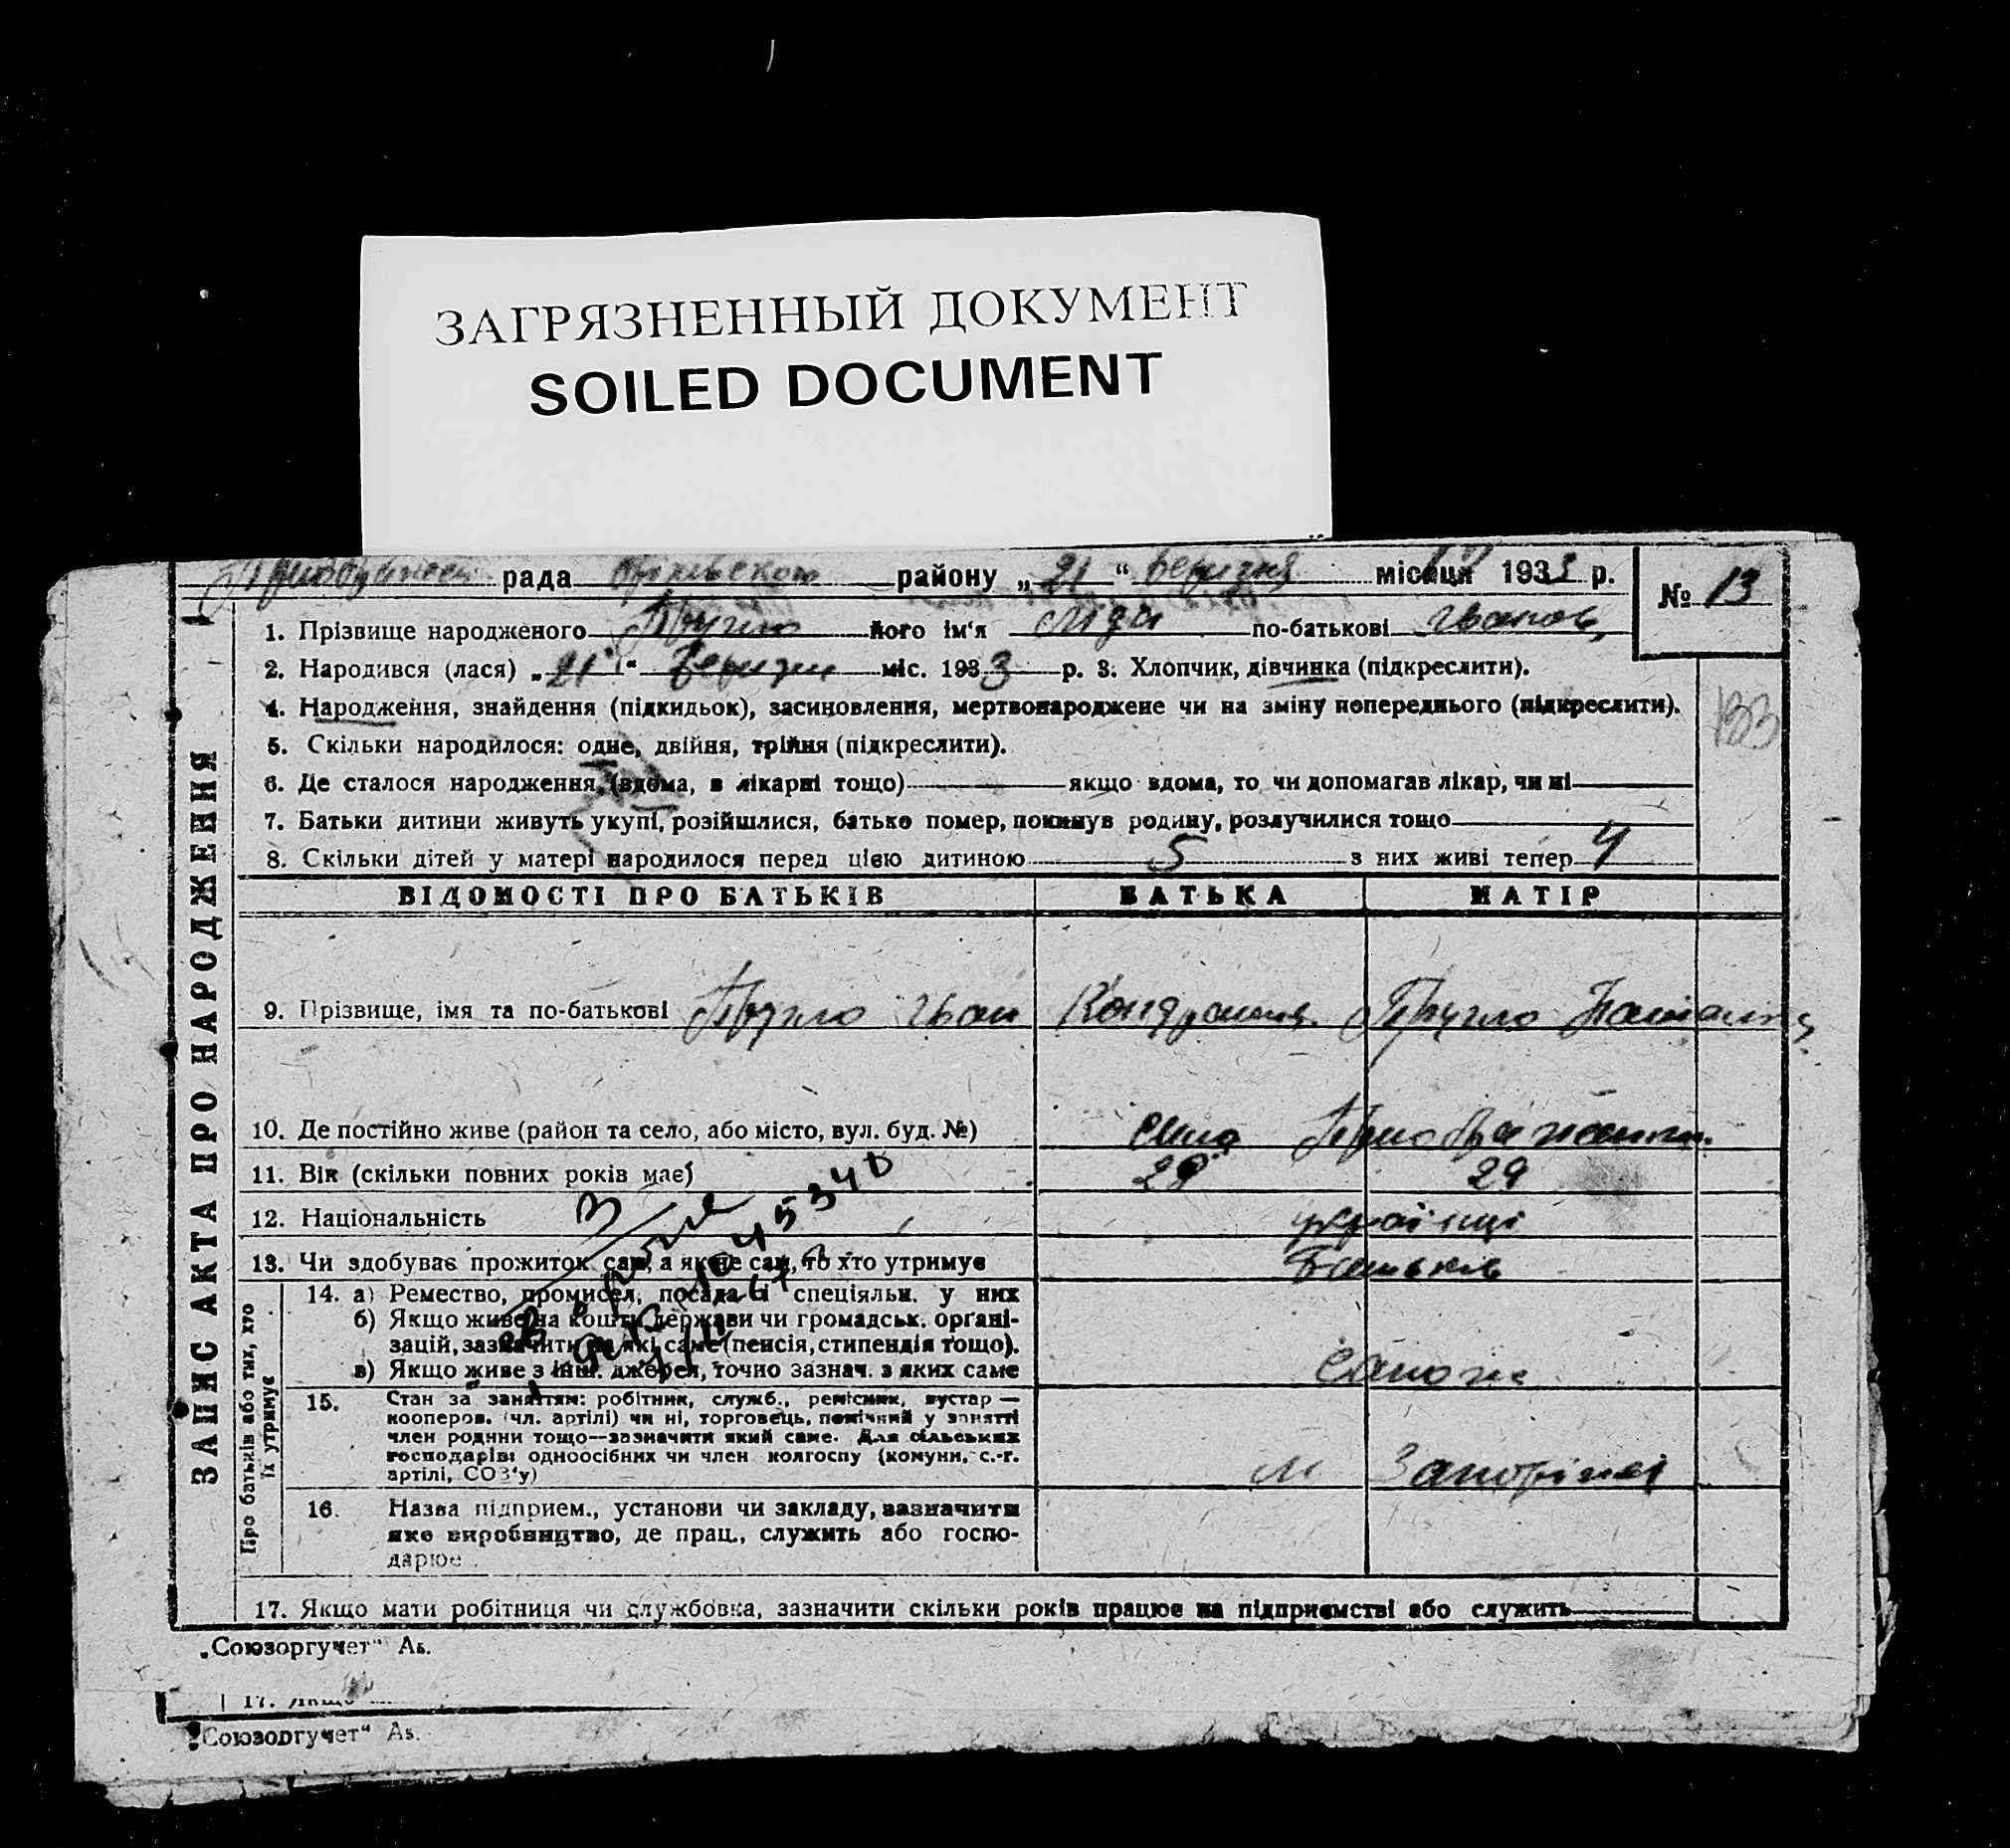 ЗАГРЯЗНЕННЫЙ ДОКУМЕНТ
SOILED DOCUMENT
рада району „21“ березня місяця 1933 р.
№ 13
1. Прізвище народженого його ім'я Ліда по-батькові Іванов,
2. Народився (лася) „21“ березня міс. 1933 р. 3. Хлопчик, дівчинка (підкреслити).
133
4. Народження, знайдення (підкидьок), засиновлення, мертвонароджене чи на зміну попереднього (підкреслити).
5. Скільки народилося: одне, двійня, трійня (підкреслити).
6. Де сталося народження, (вдома, в лікарні тощо) якщо вдома, то чи допомагав лікар, чи ні
7. Батьки дитини живуть укупі, розійшлися, батько помер, покинув родину, розлучилися тощо
8. Скільки дітей у матері народилося перед цією дитиною 5 з них живі тепер 4
ЗАПИС АКТА ПРО НАРОДЖЕННЯ
ВІДОМОСТІ ПРО БАТЬКІВ БАТЬКА МАТІР
9. Прізвище, імя та по-батькові Іван
10. Де постійно живе (район та село, або місто, вул. буд. №) село
11. Вік (скільки повних років має) 29 29
12. Національність українці
13. Чи здобуває прожиток сам, а як не сам, то хто утримує
Про батьків або тих, хто їх утримує
14. а) Ремество, промисел, посада й спеціяльн. у них
б) Якщо живе на кошти держави чи громадськ. органі-
зацій, зазначити на які саме (пенсія, стипендія тощо).
в) Якщо живе з інш. джерел, точно зазнач. з яких саме
15. Стан за заняттям: робітник, служб., ремісник, кустар —
кооперов. (чл. артілі) чи ні, торговець, помічний у занятті
член родини тощо—зазначити який саме. Для сільських
господарів: одноосібних чи член колгоспу (комуни, с.-г.
артілі, СОЗ'у)
16. Назва підприєм., установи чи закладу, зазначити
яке виробництво, де прац., служить або госпо-
дарює
17. Якщо мати робітниця чи службовка, зазначити скільки років працює на підприємстві або служить
„Союзоргучет“ Ав.
17. Якщо
„Союзоргучет“ Ав.